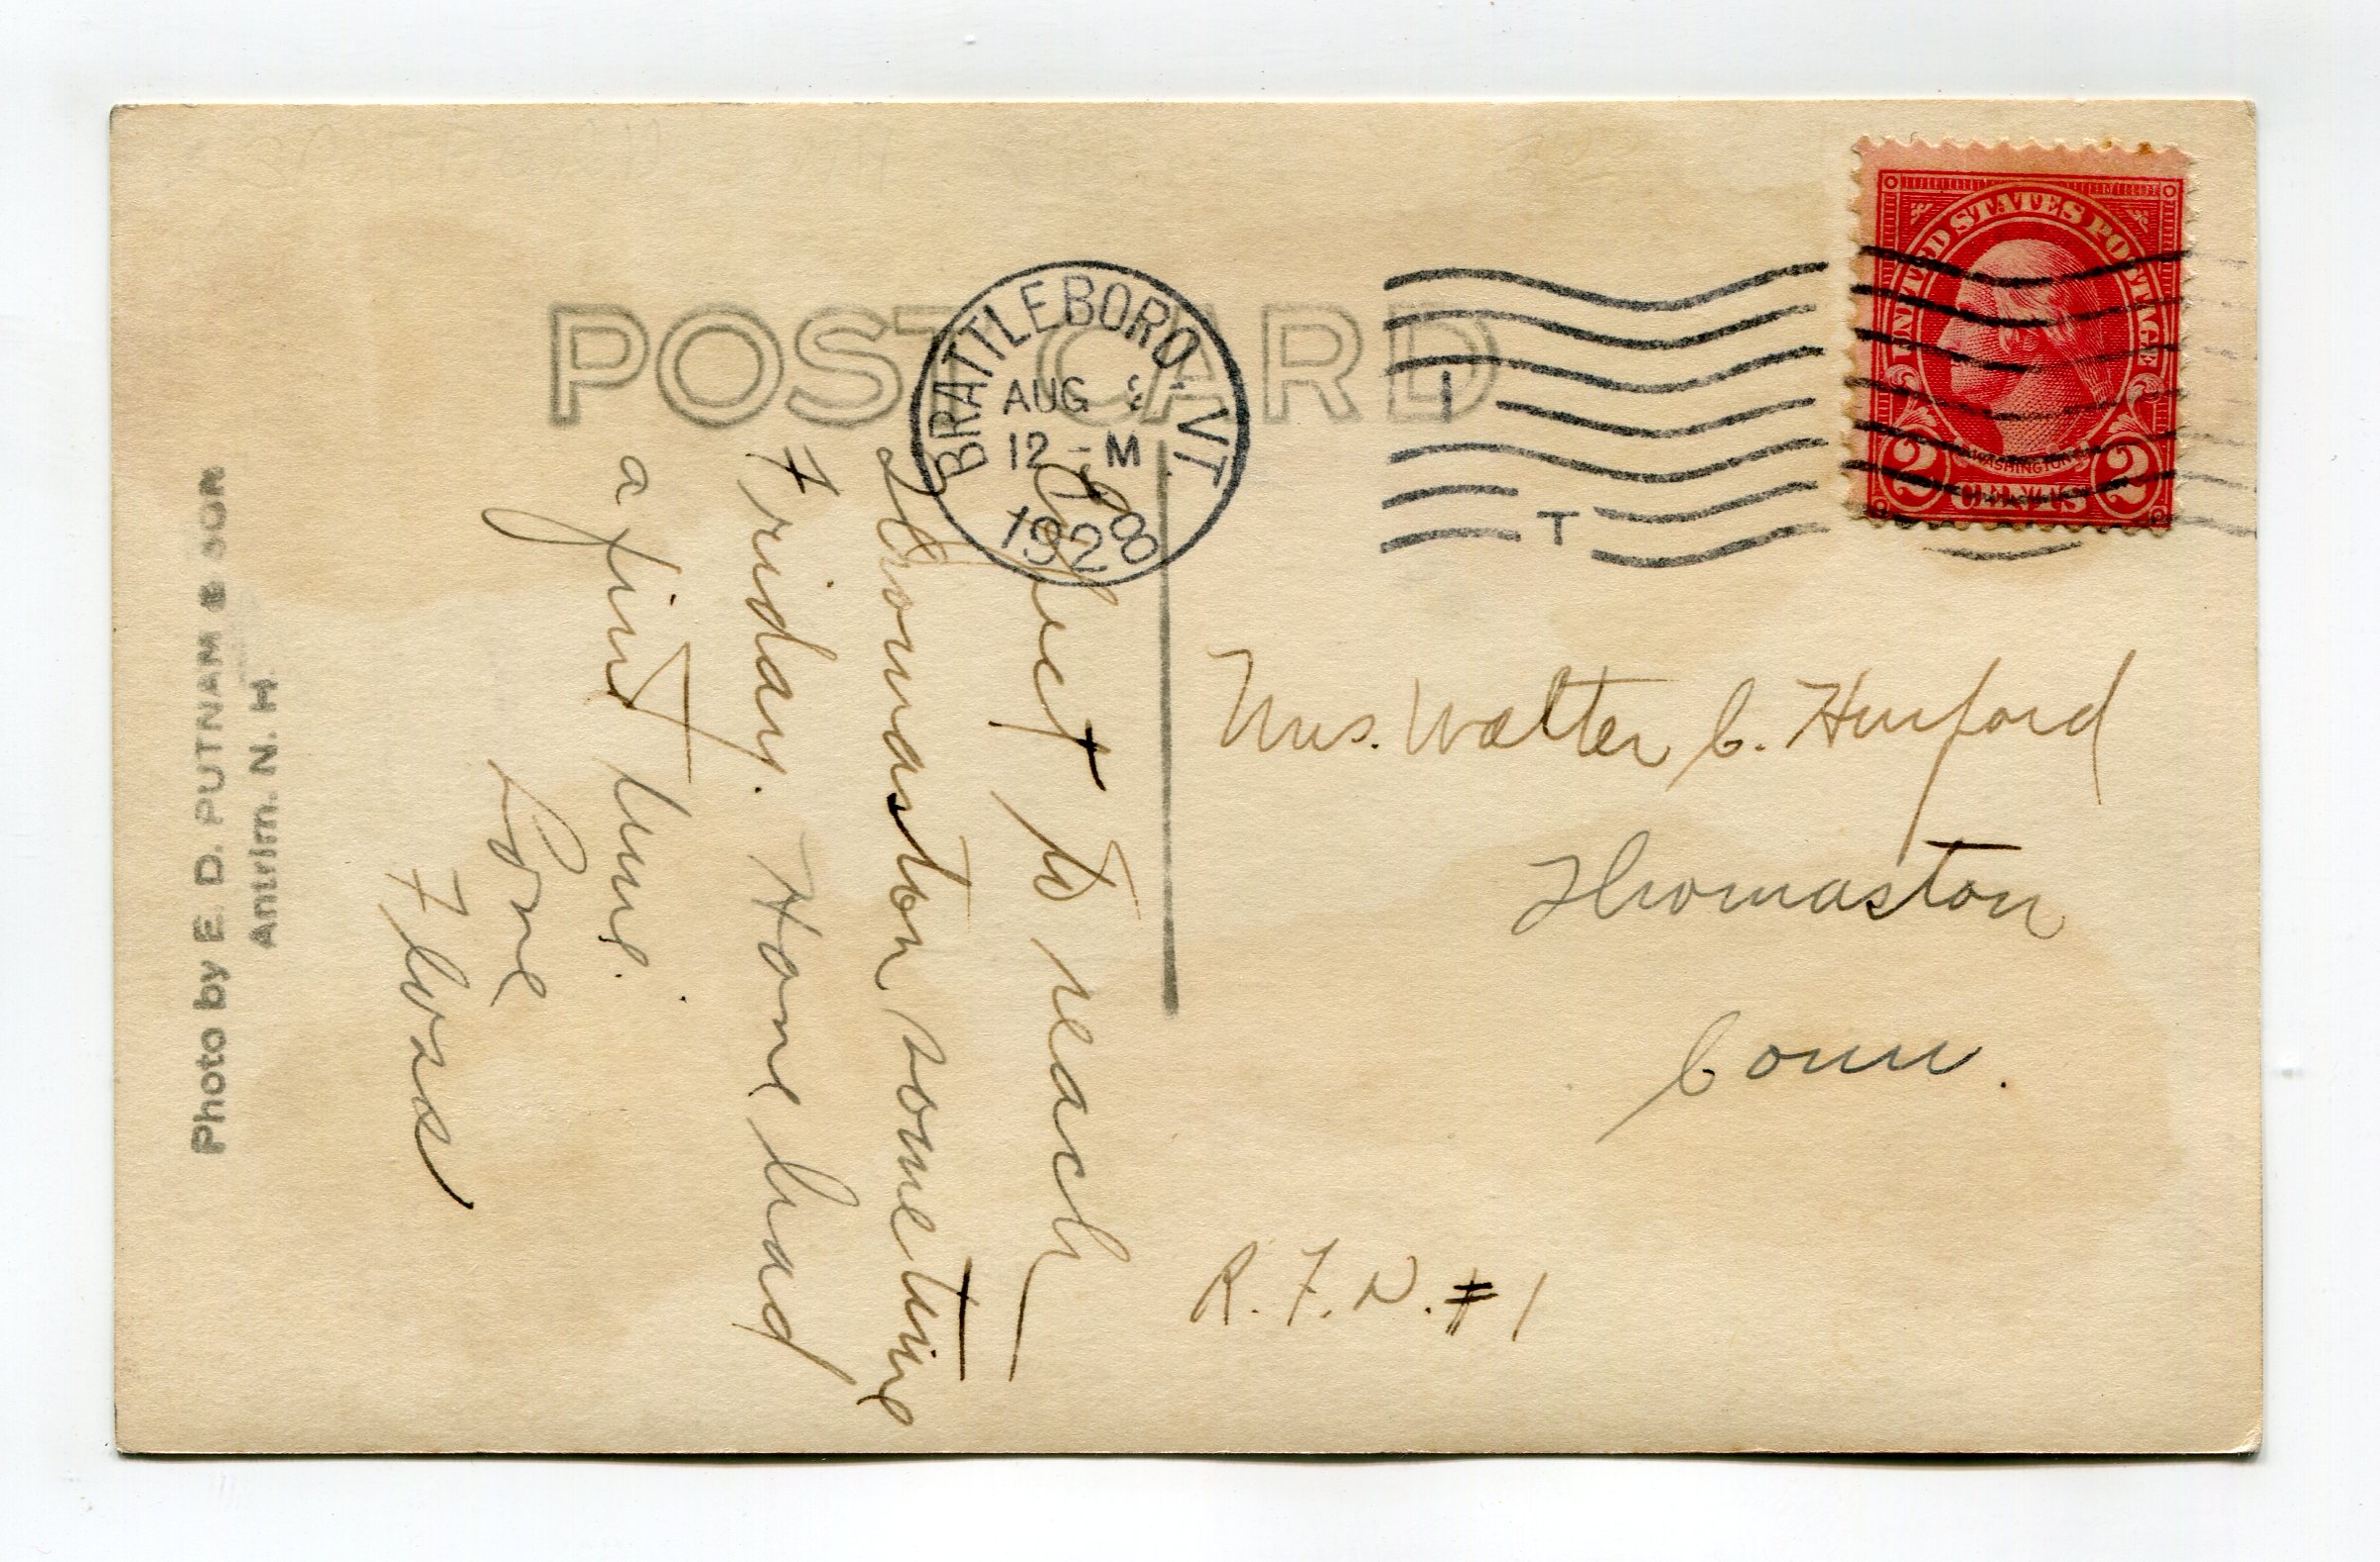 POST CARD
BRATTLEBORO - VT
AUG
12 - M
1928
I
T
UNITED STATES POSTAGE
WASHINGTON
2 CENTS 2
Expect to reach
Thomaston sometime
Friday. Have had
a fine time.
Love
Floss
Mrs. Walter C. Hurford
Thomaston
Conn.
R.F.D. #1
Photo by E. D. PUTNAM & SON
Antrim. N. H.